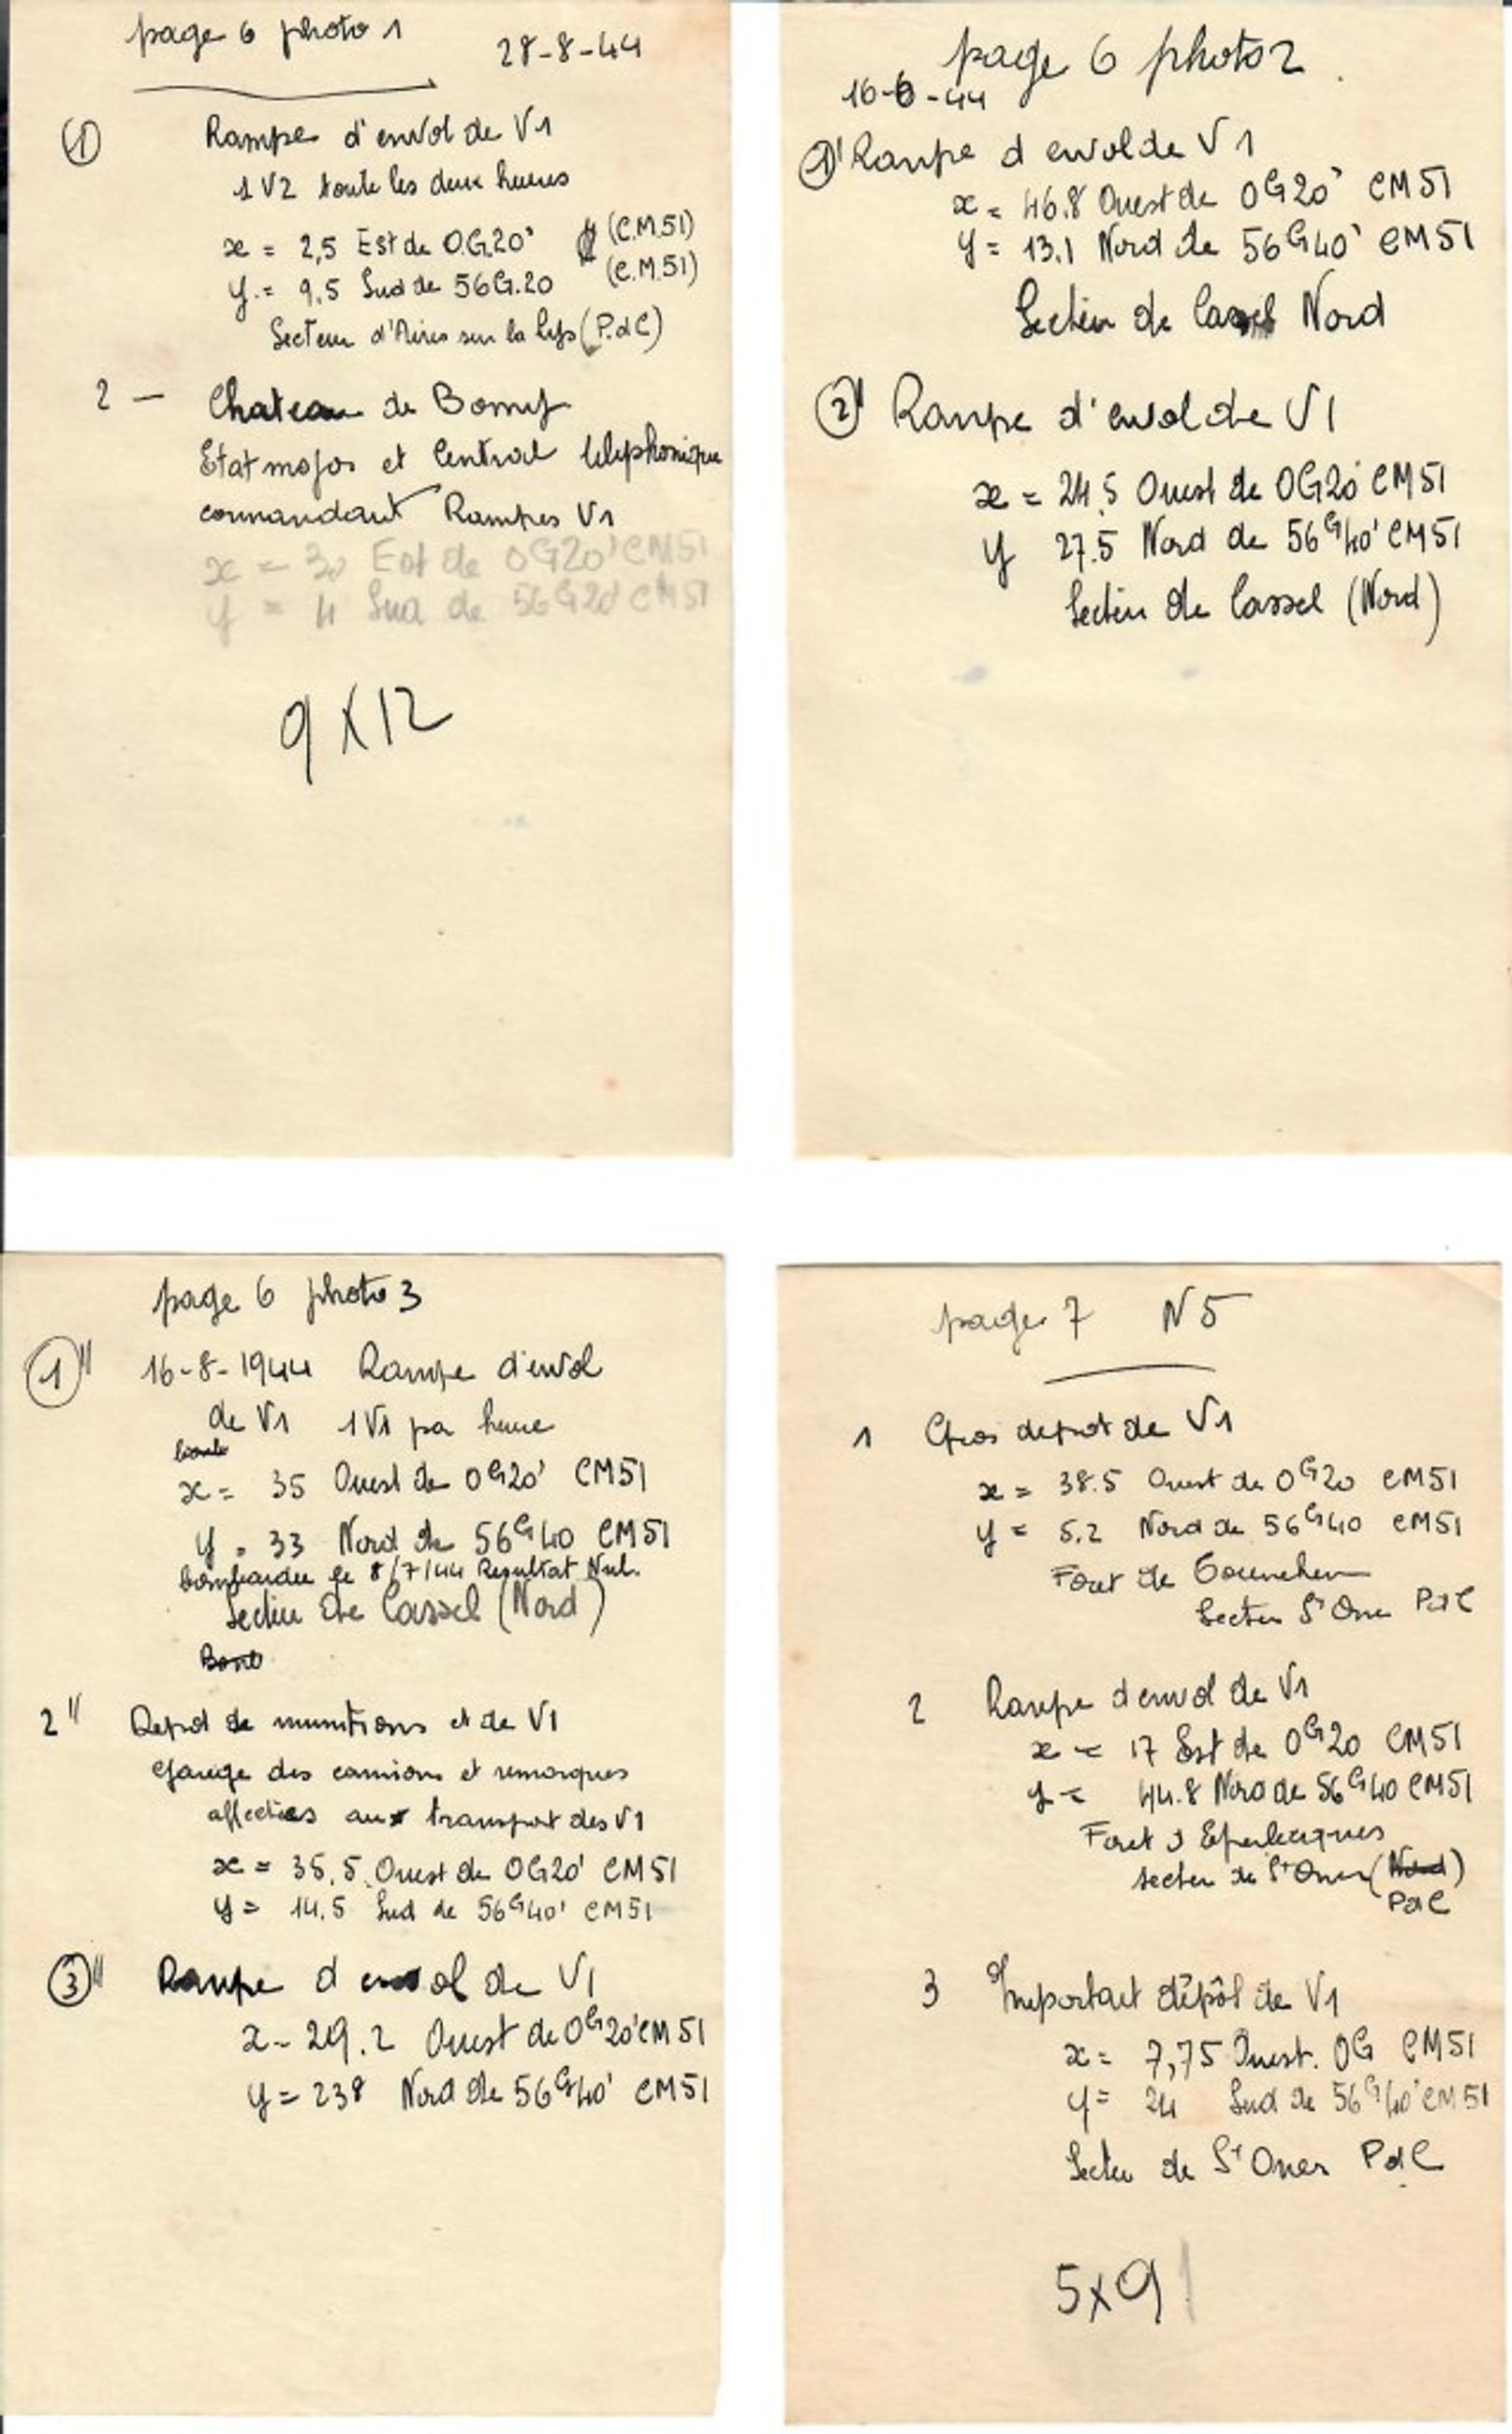 page 6 photo 1
28-8-44
① Rampe d'envol de V1
1 V2 toute les deux heures
x = 2,5 Est de 0.G.20' (C.M.51)
y = 9.5 Sud de 56G.20 (C.M.51)
Secteur d'Aires sur la Lys (P.d C)
2 — Chateau de Bomy
Etat major et Central téléphonique
commandant Rampes V1
x = 30 Est de 0G20' CM51
y = 4 Sud de 56G20' CM51
9 X 12
page 6 photo 2
16-6-44
①' Rampe d envol de V1
x = 46.8 Ouest de 0G20' CM51
y = 13.1 Nord de 56G40' CM51
Secteur de Cassel Nord
②" Rampe d'envol de V1
x = 24.5 Ouest de 0G20' CM51
y 27.5 Nord de 56G40' CM51
Secteur de Cassel (Nord)
page 6 photo 3
①" 16-8-1944 Rampe d'envol
de V1 1 V1 par heure
x = 35 Ouest de 0G20' CM51
y = 33 Nord de 56G40 CM51
bombardée le 8/7/44 Resultat Nul.
Secteur de Cassel (Nord)
2" Depot de munitions et de V1
Garage des camions et remorques
affectées aux transport des V1
x = 35,5 Ouest de 0G20' CM51
y = 14.5 Sud de 56G40' CM51
③" Rampe d envol de V1
x - 29.2 Ouest de 0G20' CM51
y = 238 Nord de 56G40' CM51
page 7 N 5
1 Gros depot de V1
x = 38.5 Ouest de 0G20 CM51
y = 5.2 Nord de 56G40 CM51
Foret de
Secteur St Omer PdC
2 Rampe d'envol de V1
x = 17 Est de 0G20 CM51
y = 44.8 Nord de 56G40 CM51
Foret d Eperlecques
secteur de St Omer (Nord)
PdC
3 Important dépôt de V1
x = 7,75 Ouest. 0G CM51
y = 24 Sud de 56G40' CM51
Secteur de St Omer PdC
5x9